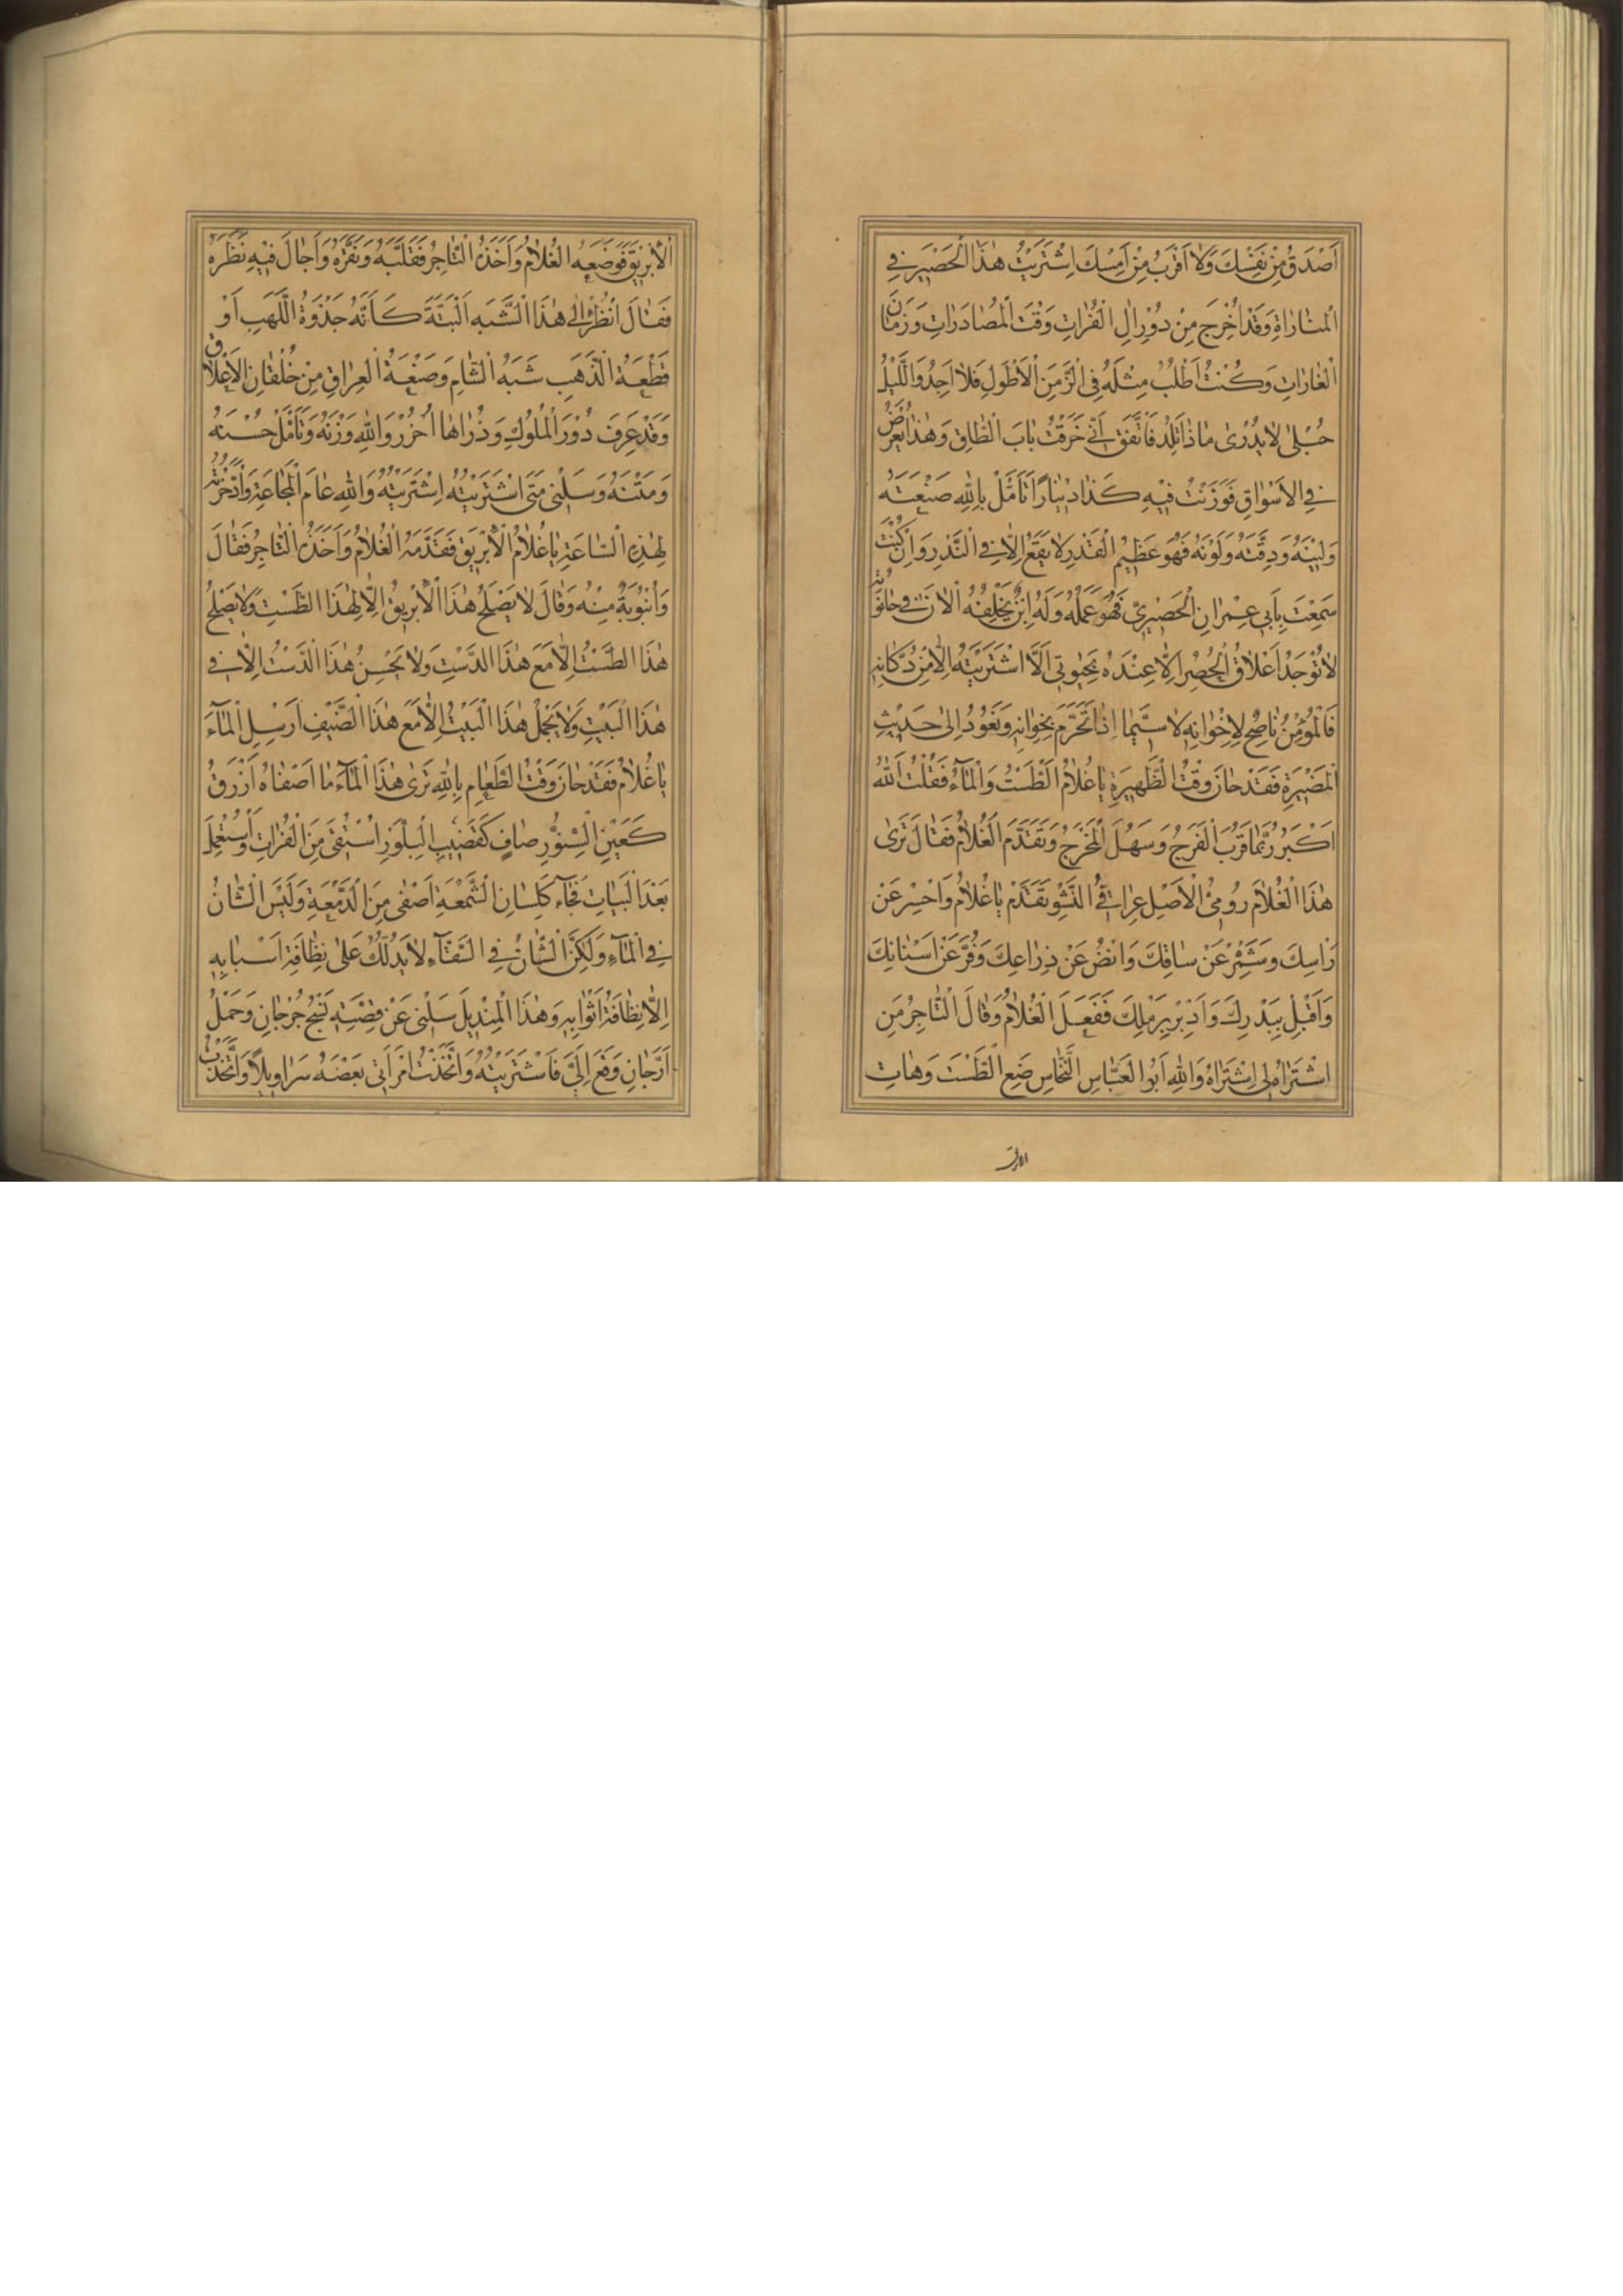 اَصْدَقُ مِنْ نَفْسِكَ وَلَا اَقْرَبُ مِنْ اَمْسِكَ اِشْتَرَيْتُ هٰذَا الْحَصْيِرَ فِي
الْمنٰارٰاةِ وَقَدْ اُخْرِجَ مِنْ دُوْرِ اٰلِ الْفُرٰاتِ وَقْتَ الْمُصٰادَرٰاتِ وَزَمٰانَ
الْغٰارٰاتِ وَكُنْتُ اَطْلُبُ مِثْلَهُ فِي الزَّمَنِ الْاَطْوَلِ فَلٰا اَجِدُ وَالَّيْلُ
حُبْلٰى لٰا يُدْرٰى مٰا ذٰا تَلِدُ فَاتَّفَقَ اَنّٖي خَرَقْتُ بٰابَ الطّٰاقِ وَهٰذٰا يُعْرَضُ
فِي الْاَسْوٰاقِ فَوَزَنْتُ فِيْهِ كَذٰا دِيْنٰارًا تَاَمَّلْ بِاللّٰهِ صَنْعَتَهُ
وَلِيْنَهُ وَدِقَّتَهُ وَلَوْنَهُ فَهُوَ عَظِيْمُ الْقَدْرِ لٰا يَقَعُ اِلّٰا فِي النَّدْرِ وَاِنْ كُنْتَ
سَمِعْتَ بِاَبِي عِمْرٰانِ الْحَصْيِرِيِّ فَهُوَ عَمِلَهُ وَلَهُ اِبْنٌ يَخْلِفُهُ الْاٰنَ فِي حٰانُوْتِهِ
لٰا تُوْجَدُ اَعْلٰاقُ الْحُصُرِ اِلّٰا عِنْدَهُ بِحَيٰوتِي اَلَّا اشْتَرَيْتَهُ اِلّٰا مِنْ دُكّٰانِهِ
فَالْمُؤْمِنُ نٰاصِحٌ لِاِخْوٰانِهِ لٰا سِيَّمٰا اِذٰا تَحَرَّمَ بِخِوٰانِهِ وَنَعُوْدُ اِلٰى حَدِيْثِ
الْمَضِيْرَةِ فَقَدْ حٰانَ وَقْتُ الظَّهِيْرَةِ يٰا غُلٰامُ الطَّسْتَ وَالْمٰآءَ فَقُلْتُ اَللّٰهُ
اَكْبَرُ رُبَّمٰا قَرُبَ الْفَرَجُ وَسَهُلَ الْمَخْرَجُ وَتَقَدَّمَ الْغُلٰامُ فَقٰالَ تَرٰى
هٰذَا الْغُلٰامَ رُوْمِيُّ الْاَصْلِ عِرٰاقِيُّ النَّشْوِ تَقَدَّمْ يٰا غُلٰامُ وَاحْسِرْ عَنْ
رَاْسِكَ وَشَمِّرْ عَنْ سٰاقِكَ وَانْضُ عَنْ ذِرٰاعِكَ وَفُرَّ عَنْ اَسْنٰانِكَ
وَاَقْبِلْ بِبَدْرِكَ وَاَدْبِرْ بِرَمْلِكَ فَفَعَلَ الْغُلٰامُ وَقٰالَ التّٰاجِرُ مَنِ
اشْتَرٰاهُ لِي اِشْتَرٰاهُ وَاللّٰهِ اَبُوا الْعَبّٰاسِ النَّخّٰاسِ ضَعِ الطَّسْتَ وَهٰاتِ
الابريق
الْاِبْرِيْقَ فَوَضَعَهُ الْغُلٰامُ وَاَخَذَهُ التّٰاجِرُ فَقَلَّبَهُ وَنَقَّرَهُ وَاَجٰالَ فِيْهِ نَظَرَهُ
فَقٰالَ اُنْظُرْ اِلٰى هٰذَا الشَّبَهِ اَلْبَتَّةَ كَاَنَّهُ جَذْوَةُ اللَّهَبِ اَوْ
قَطْعَةُ الذَّهَبِ شَبَهُ الشّٰامِ وَصَنْعَةُ الْعِرٰاقِ مِنْ خُلْقٰانِ الْاَعْلٰاقِ
وَقَدْ عَرَفَ دُوْرَ الْمُلُوْكِ وَذُرٰاهٰا اُحْزُرْ وَاللّٰهِ وَزْنَهُ وَتَاَمَّلْ حُسْنَهُ
وَمَتْنَهُ وَسَلْنِي مَتَى اشْتَرَيْتُهُ اِشْتَرَيْتُهُ وَاللّٰهِ عٰامَ الْمَجٰاعَةِ وَادَّخَرْتُهُ
لِهٰذِهِ السّٰاعَةِ يٰا غُلٰامُ الْاِبْرِيْقَ فَقَدَّمَهُ الْغُلٰامُ وَاَخَذَهُ التّٰاجِرُ فَقٰالَ
وَاُنْبُوْبَةٌ مِنْهُ وَقٰالَ لٰا يَصْلَحُ هٰذَا الْاِبْرِيْقُ اِلّٰا لِهٰذَا الطَّسْتِ وَلٰا يَصْلَحُ
هٰذَا الطَّسْتُ اِلّٰا مَعَ هٰذَا الدَّسْتِ وَلٰا يَحْسُنُ هٰذَا الدَّسْتُ اِلّٰا فِي
هٰذَا الْبَيْتِ وَلٰا يَجْمُلُ هٰذَا الْبَيْتُ اِلّٰا مَعَ هٰذَا الضَّيْفِ اَرْسِلِ الْمٰآءَ
يٰا غُلٰامُ فَقَدْ حٰانَ وَقْتُ الطَّعٰامِ بِاللّٰهِ تَرٰى هٰذَا الْمٰآءَ مٰا اَصْفٰاهُ اَزْرَقُ
كَعَيْنِ السِّنَّوْرِ صٰافٍ كَقَضِيْبِ الْبِلَّوْرِ اُسْتُقِيَ مِنَ الْفُرٰاتِ وَاسْتُعْمِلَ
بَعْدَ الْبَيٰاتِ فَجٰآءَ كَلِسٰانِ الشَّمْعَةِ اَصْفٰى مِنَ الدَّمْعَةِ وَلَيْسَ الشّٰانُ
فِي الْمٰآءِ وَلٰكِنَّ الشّٰانَ فِي السَّقّٰآءِ لٰا يَدُلُّكَ عَلٰى نِظٰافَةِ اَسْبٰابِهِ
اِلّٰا نِظٰافَةُ اَثْوٰابِهِ وَهٰذَا الْمِنْدِيْلَ سَلْنِي عَنْ قِصَّتِهِ نَسْجُ جُرْجٰانِ وَحَمْلُ
اَرَّجٰانِ وَقَعَ اِلَيَّ فَاشْتَرَيْتُهُ وَاتَّخَذَتْ اِمْرَاَتِي بَعْضَهُ سَرٰاوِيْلًا وَاتَّخَذْتُ